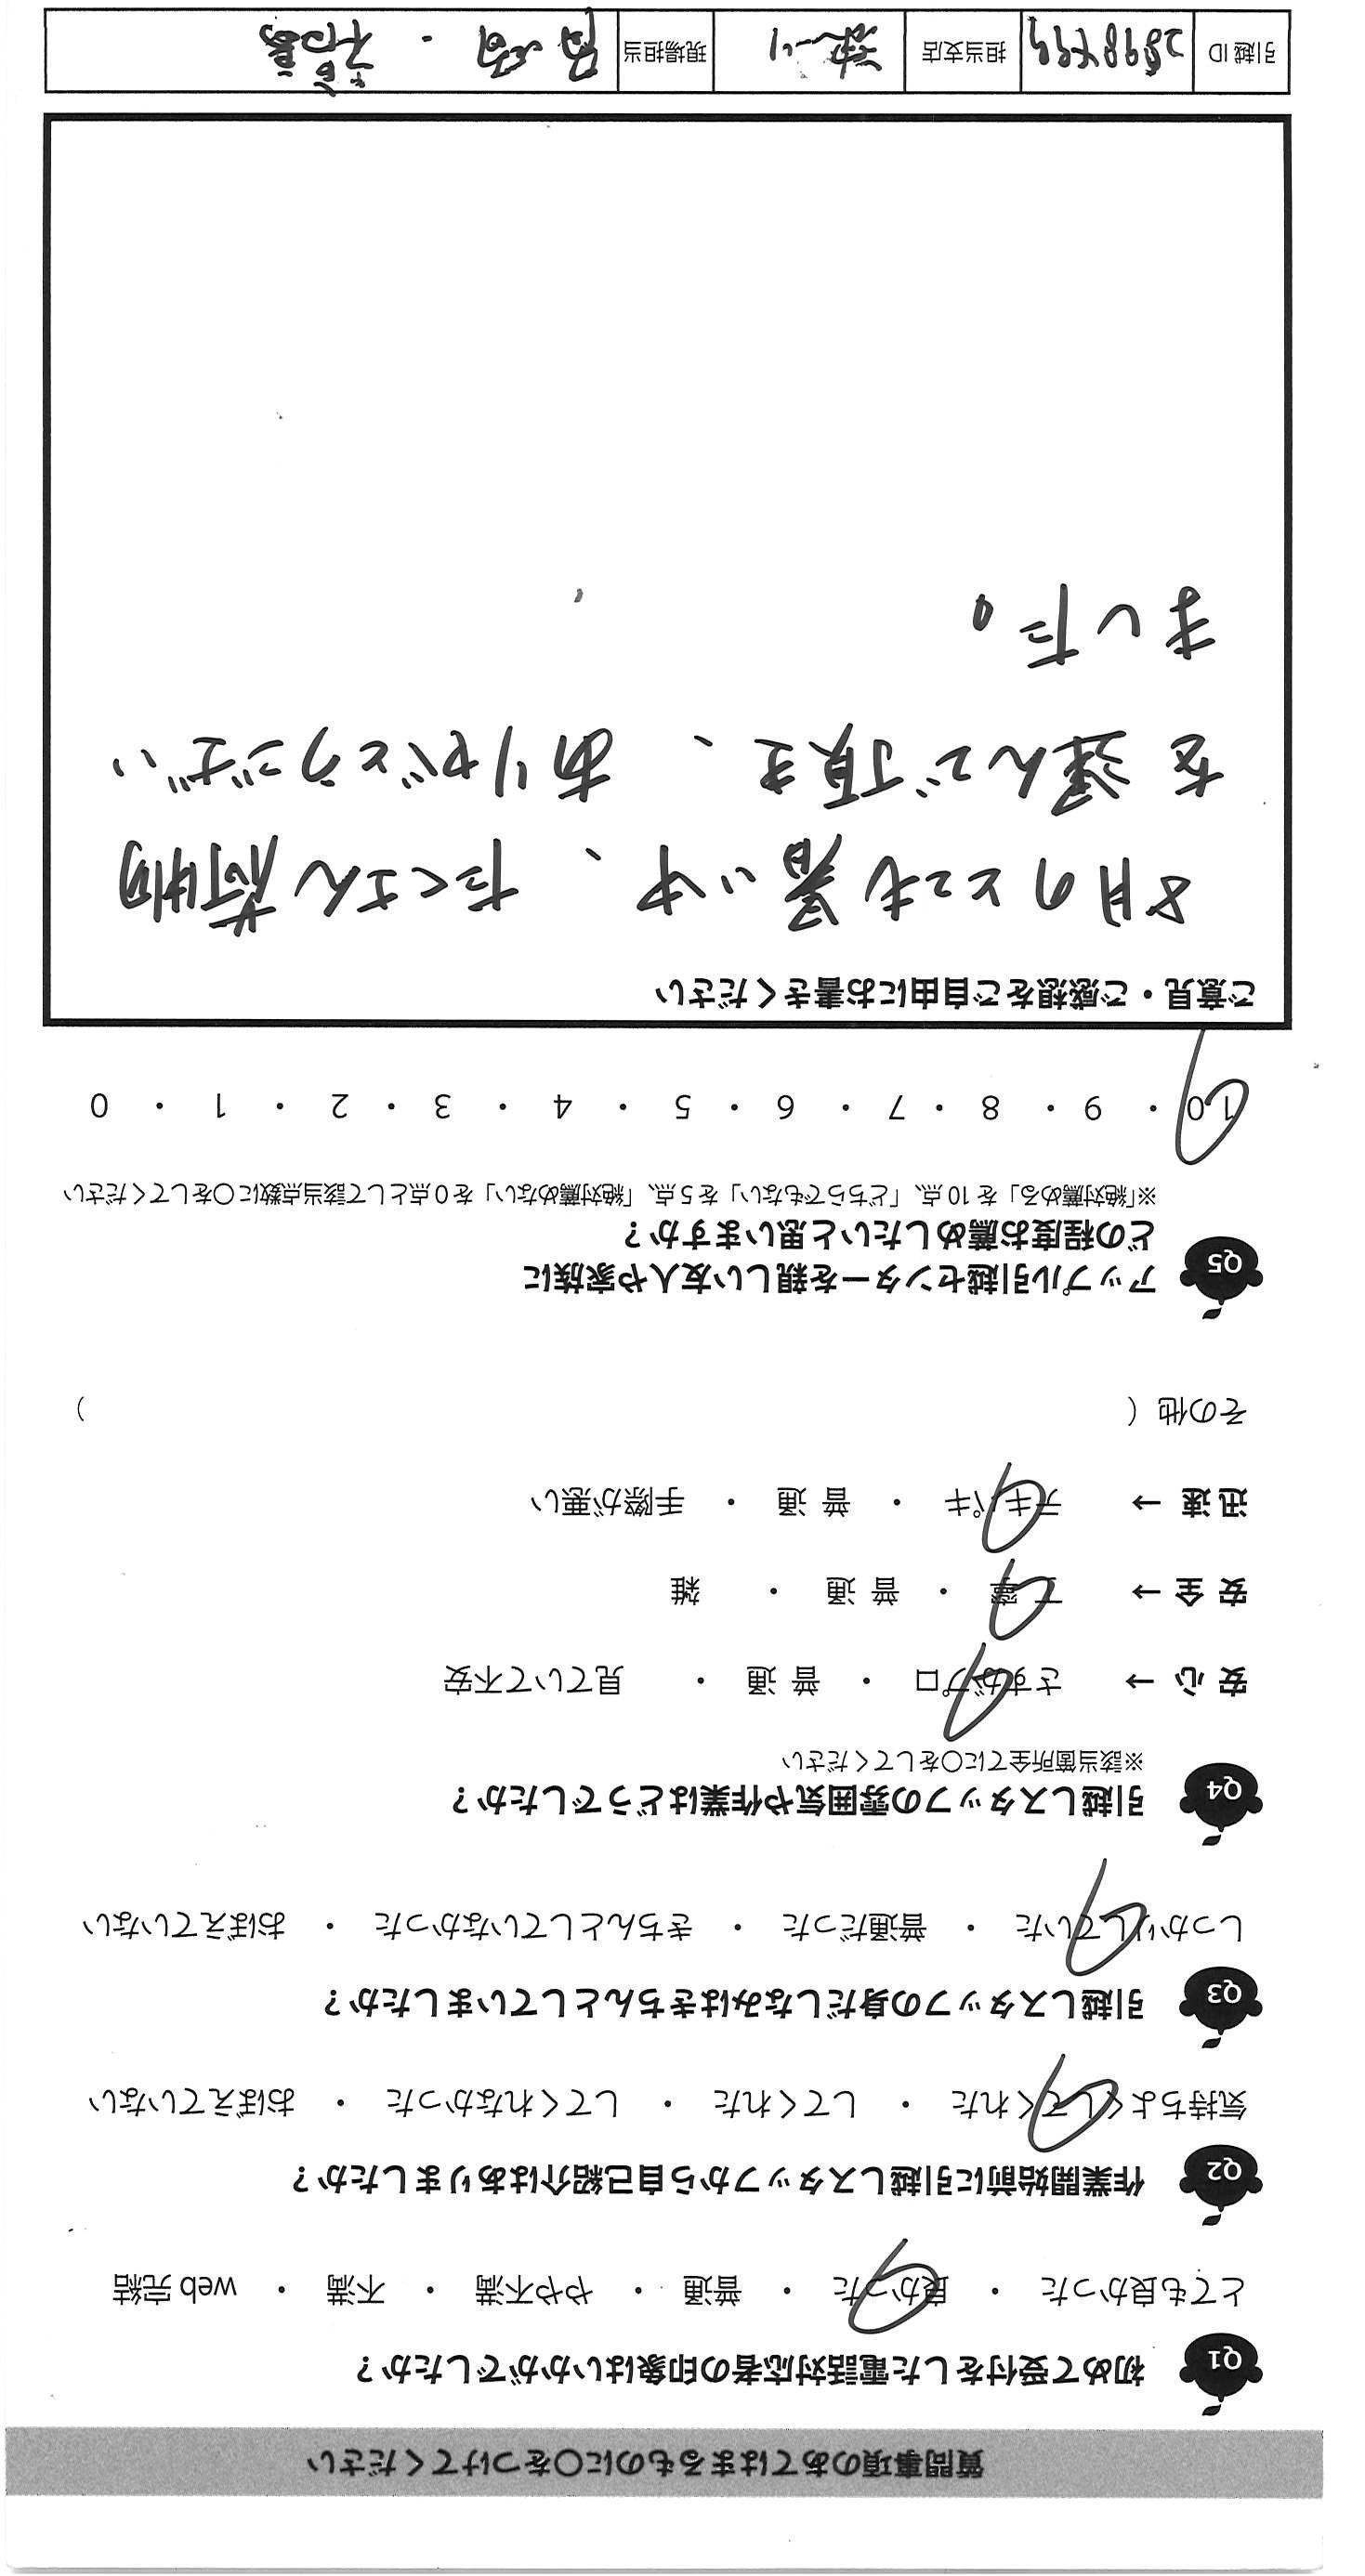 質問事項のあてはまるものに〇をつけてください
Q1 初めて受付をした電話対応者の印象はいかがでしたか？
とても良かった ・ 良かった ・ 普通 ・ やや不満 ・ 不満 ・ web 完結
Q2 作業開始前に引越しスタッフから自己紹介はありましたか？
気持ちよくしてくれた ・ してくれた ・ してくれなかった ・ おぼえていない
Q3 引越しスタッフの身だしなみはきちんとしていましたか？
しっかりしていた ・ 普通だった ・ きちんとしていなかった ・ おぼえていない
Q4 引越しスタッフの雰囲気や作業はどうでしたか？
※該当箇所全てに〇をしてください
安 心 → さすがプロ ・ 普 通 ・ 見ていて不安
安 全 → 丁寧 ・ 普 通 ・ 雑
迅 速 → テキパキ ・ 普 通 ・ 手際が悪い
その他（ ）
Q5 アップル引越センターを親しい友人や家族に
どの程度お薦めしたいと思いますか？
※「絶対薦める」を 10 点、「どちらでもない」を 5 点、「絶対薦めない」を 0 点として該当点数に〇をしてください
10 ・ 9 ・ 8 ・ 7 ・ 6 ・ 5 ・ 4 ・ 3 ・ 2 ・ 1 ・ 0
ご意見・ご感想をご自由にお書きください
8月のとても暑い中、たくさん荷物
を運んで頂き、ありがとうござい
ました。
引越 ID 担当支店 現場担当